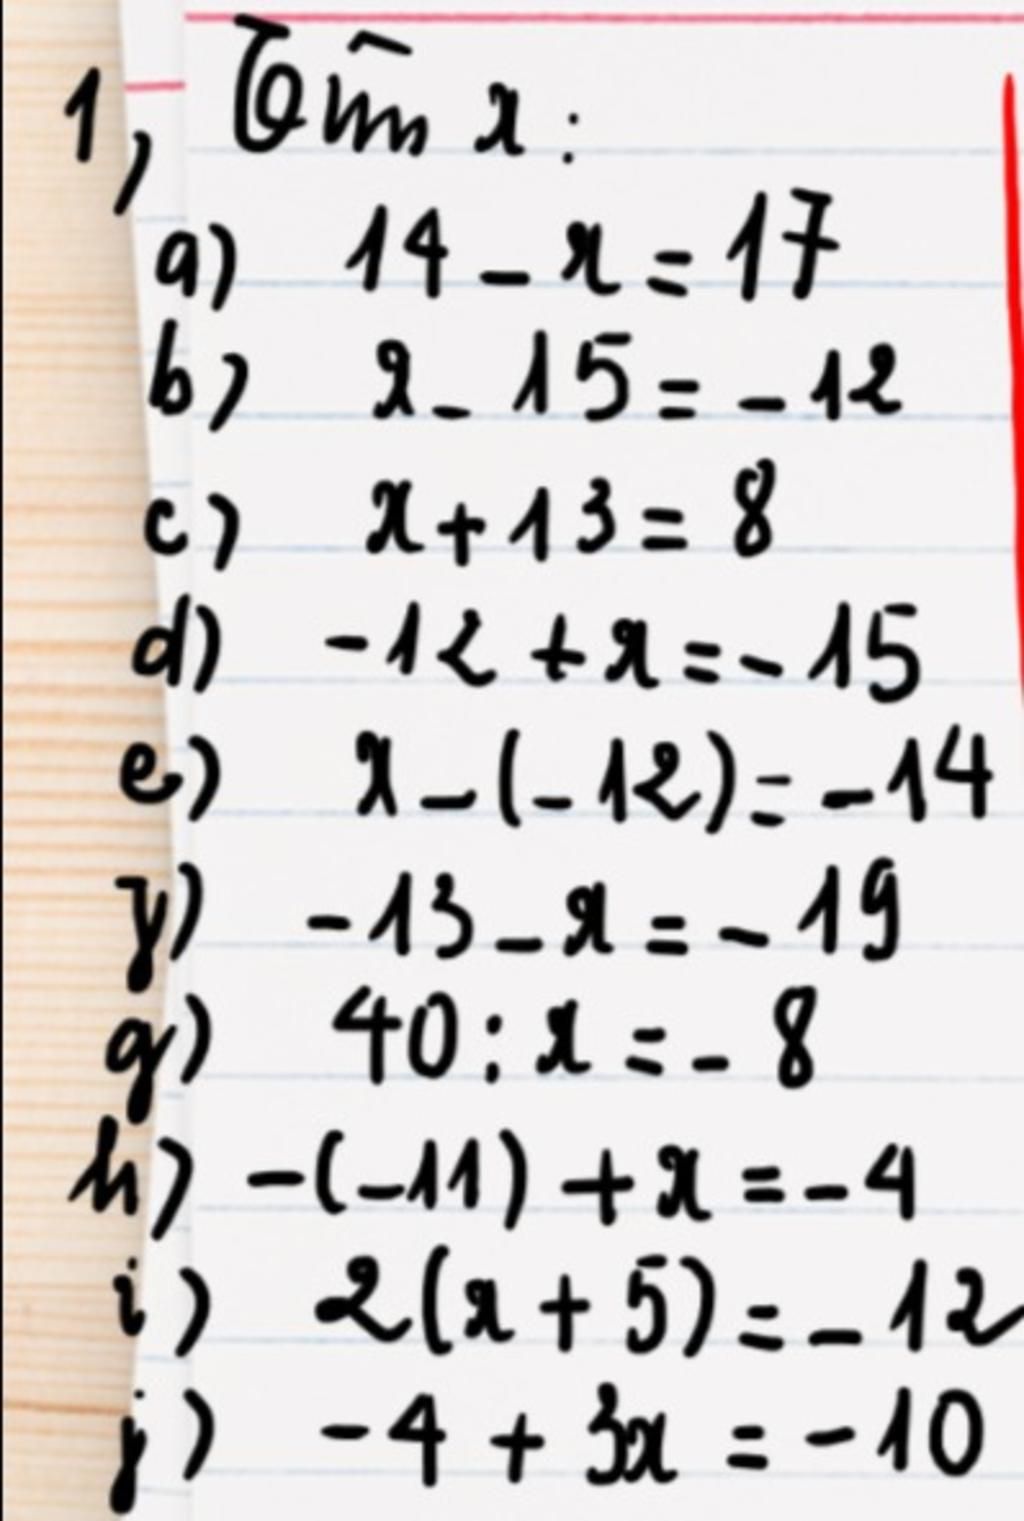 1, Tìm x:
a) 14 - x = 17
b) x - 15 = - 12
c) x + 13 = 8
d) - 12 + x = - 15
e) x - (- 12) = - 14
f) - 13 - x = - 19
g) 40 : x = - 8
h) - (- 11) + x = - 4
i) 2(x + 5) = - 12
j) - 4 + 3x = - 10